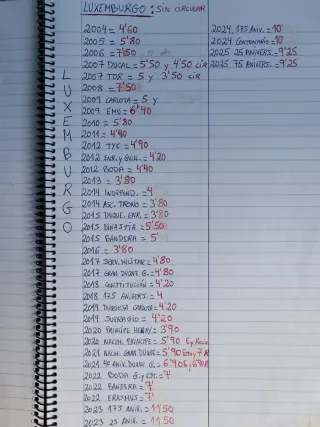 LUXEMBURGO: SIN CIRCULAR
LUXEMBURGO
2004 = 4'60
2005 = 5'80
2006 = 7'50
2007 DUCAL = 5'50 y 4'50 cir
2007 TDR = 5 y 3'50 cir
2008 = 7'50
2009 CARLOTA = 5 y
2009 EMU = 6'40
2010 = 5'80
2011 = 4'40
2012 TYE = 4'90
2012 ENR. y GUILL. = 4'20
2012 BODA = 4'40
2013 = 3'80
2014 INDEPEND. = 4
2014 ASC. TRONO = 3'80
2015 DUQUE. ENR. = 3'80
2015 DINASTÍA = 5'50
2015 BANDERA = 5'
2016 = 3'80
2017 SERV. MILITAR = 4'80
2017 GRAN DUQUE G. = 4'80
2018 CONSTITUCIÓN = 4'20
2018 175 ANIVERS. = 4
2019 DUQUESA CARLOTA = 4'20
2019 SUFRAGIO = 4'20
2020 PRINCIPE HENRY = 3'90
2020 NACIM. PRINCIPE = 5'90
2021 NACIM. GRAN DUQUE = 5'90
2021 40 ANIV. DUQUE G. =
2022 BODA G. y EST. = 7'
2022 BANDERA = 7'
2022 ERASMUS = 7'
2023 175 ANIV. = 11'50
2023 25 ANIV. = 11'50
2024, 175 ANIV. = 10'
2024 CENTENARIO = 10'
2025 25 ANIVERS. = 9'25
2025 75 ANIVERS. = 9'25